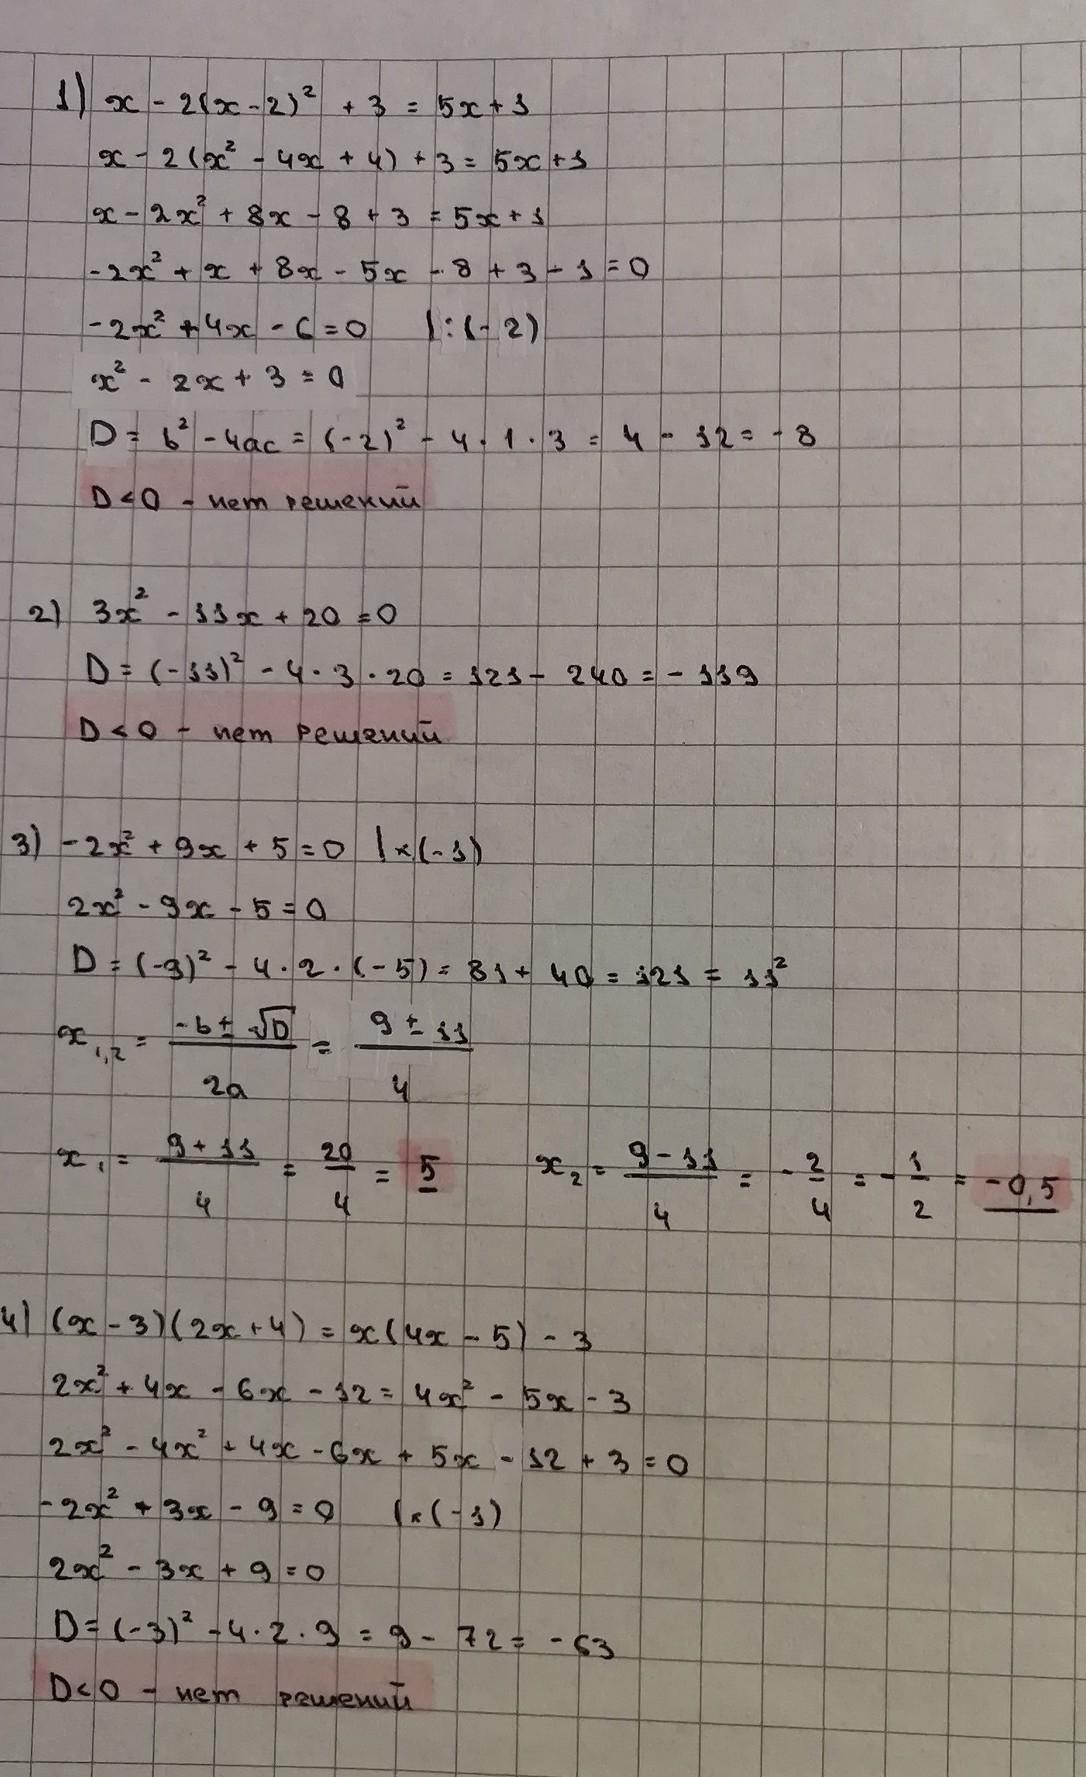 1) x - 2(x-2)² + 3 = 5x+1
x - 2(x² - 4x + 4) + 3 = 5x+1
x - 2x² + 8x - 8 + 3 = 5x+1
-2x² + x + 8x - 5x - 8 + 3 - 1 = 0
-2x² + 4x - 6 = 0 |:(-2)
x² - 2x + 3 = 0
D = b² - 4ac = (-2)² - 4·1·3 = 4 - 12 = -8
D<0 - нет решений
2) 3x² - 11x + 20 = 0
D = (-11)² - 4·3·20 = 121 - 240 = -119
D<0 - нет решений
3) -2x² + 9x + 5 = 0 |×(-1)
2x² - 9x - 5 = 0
D = (-9)² - 4·2·(-5) = 81 + 40 = 121 = 11²
x₁,₂ = (-b ± √D)/2a = (9 ± 11)/4
x₁ = (9+11)/4 = 20/4 = 5 x₂ = (9-11)/4 = -2/4 = -1/2 = -0,5
4) (x-3)(2x+4) = x(4x-5) - 3
2x² + 4x - 6x - 12 = 4x² - 5x - 3
2x² - 4x² + 4x - 6x + 5x - 12 + 3 = 0
-2x² + 3x - 9 = 0 |×(-1)
2x² - 3x + 9 = 0
D = (-3)² - 4·2·9 = 9 - 72 = -63
D<0 - нет решений